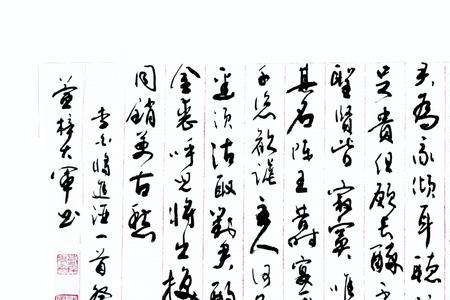 君為我傾耳聽
足貴但願長醉不
聖賢皆寂寞惟
其名陳王昔時宴
千恣歡謔主人何
逕須沽取對君酌
金裘呼兒將出換
同銷萬古愁
李白將進酒一首
大軍書